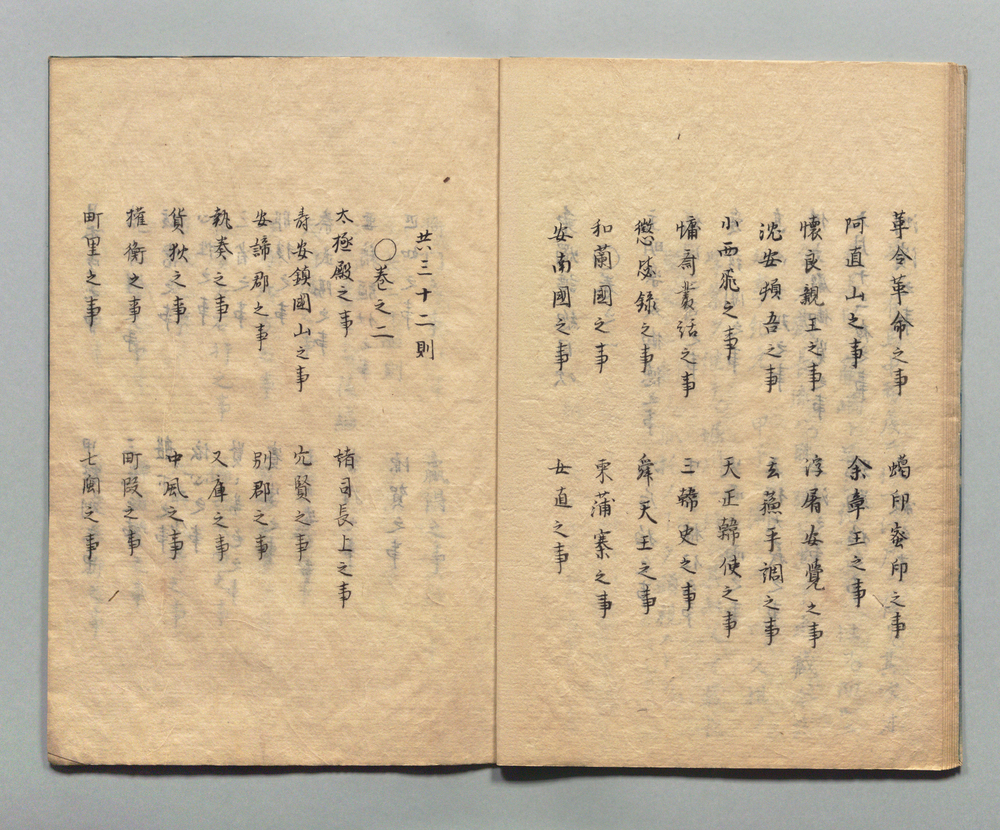 革令革命之事 蠮印蜜印之事
阿直山之事 余章王之事
懐良親王之事 浮屠安覺之事
沈安頻吾之事 玄蘓手調之事
小西飛之事 天正韓使之事
慵斎叢話之事 三韓史之事
懲毖録之事 舜天王之事
和蘭國之事 東蒲寨之事
安南國之事 女直之事
共三十二則
○巻之二
太極殿之事 諸司長上之事
壽安鎮國山之事 宍賢之事
安諦郡之事 別郡之事
執奏之事 又庫之事
貨狄之事 中風之事
權衡之事 町段之事
町里之事 七閩之事